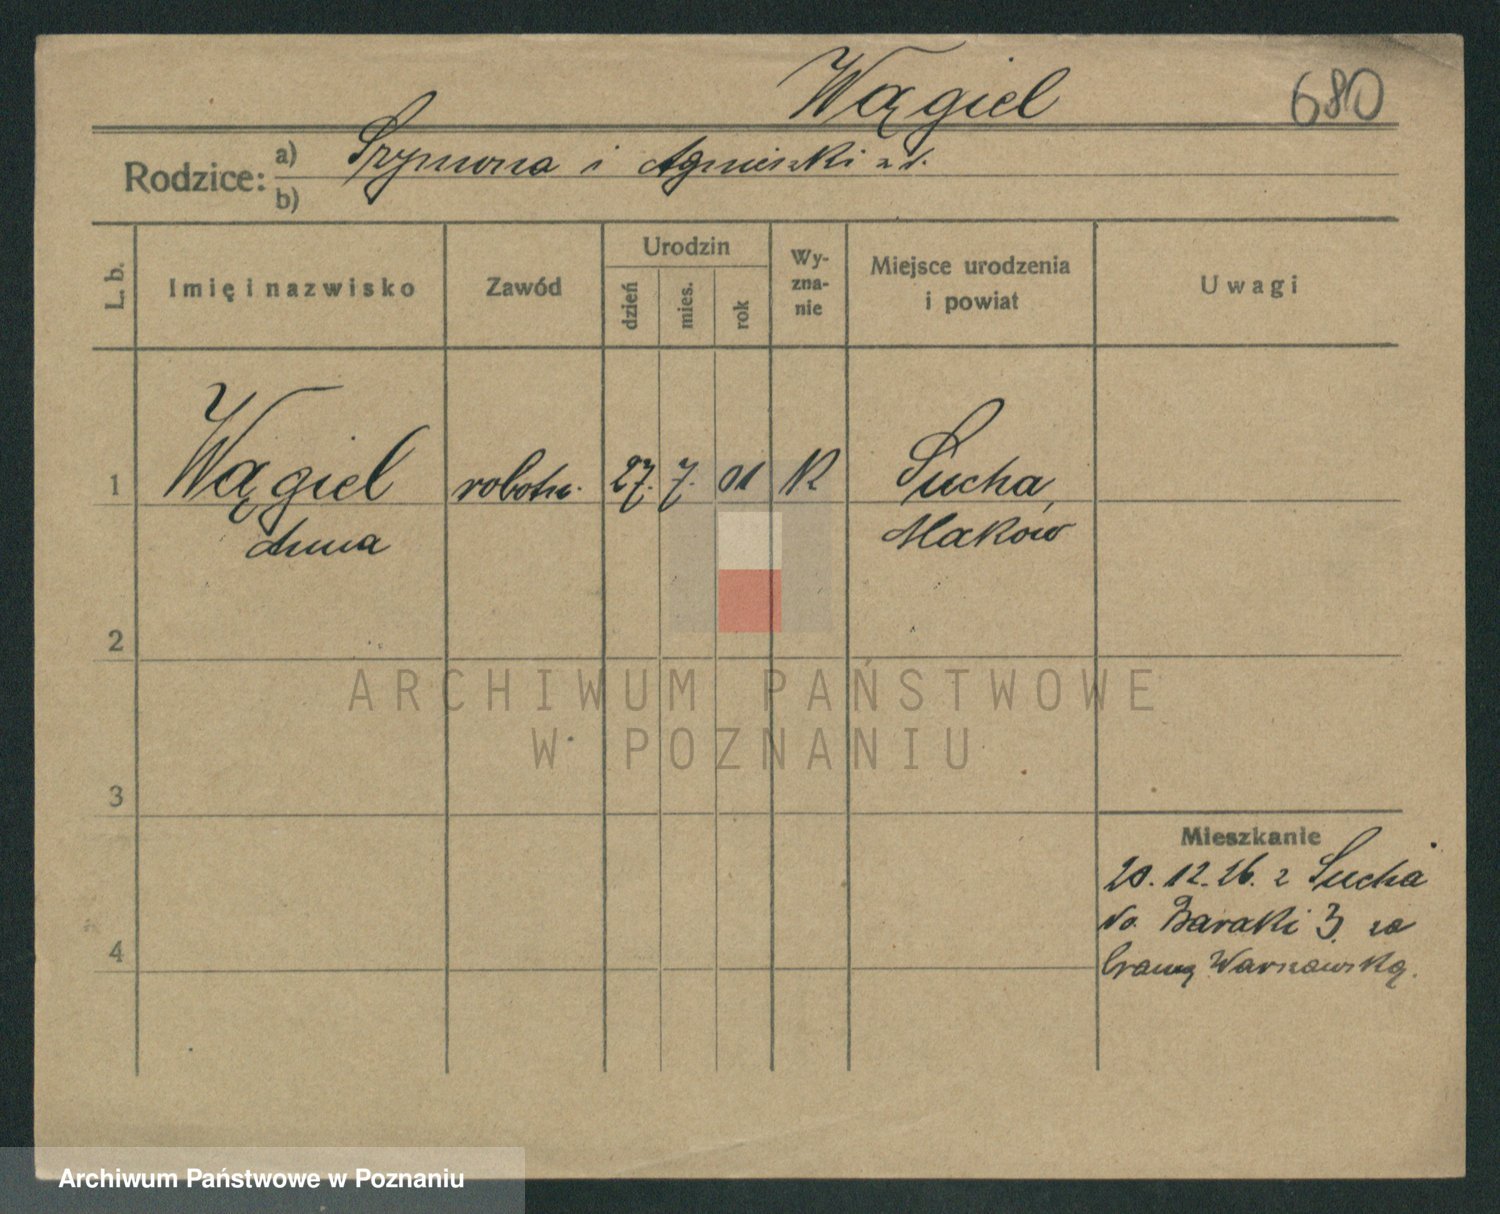 Wągiel 680
Rodzice: a) Szymona i Agnieszki z d.
b)
L. b. Imię i nazwisko Zawód Urodzin dzień mies. rok Wyznanie Miejsce urodzenia i powiat Uwagi
1 Wągiel robotn. 27. 7. 01 K Sucha,
Anna Maków
2
ARCHIWUM PAŃSTWOWE
W POZNANIU
3
Mieszkanie
20.12.26. z Sucha
do Baraki 3 za
4 bramą Warszawską.
Archiwum Państwowe w Poznaniu